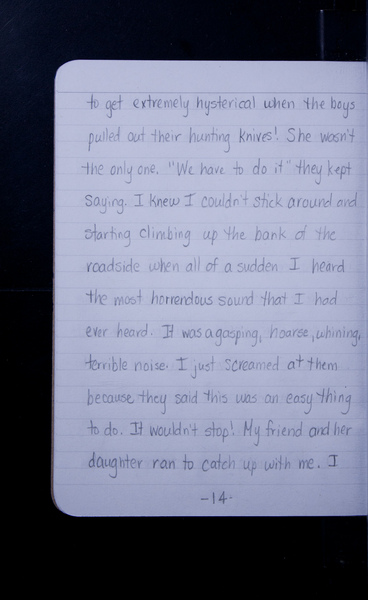 to get extremely hysterical when the boys
pulled out their hunting knives! She wasn't
the only one. "We have to do it" they kept
saying. I knew I couldn't stick around and
starting climbing up the bank at the
roadside when all of a sudden I heard
the most horrendous sound that I had
ever heard. It was a gasping, hoarse, whining,
terrible noise. I just screamed at them
because they said this was an easy thing
to do. It wouldn't stop! My friend and her
daughter ran to catch up with me. I
-14-